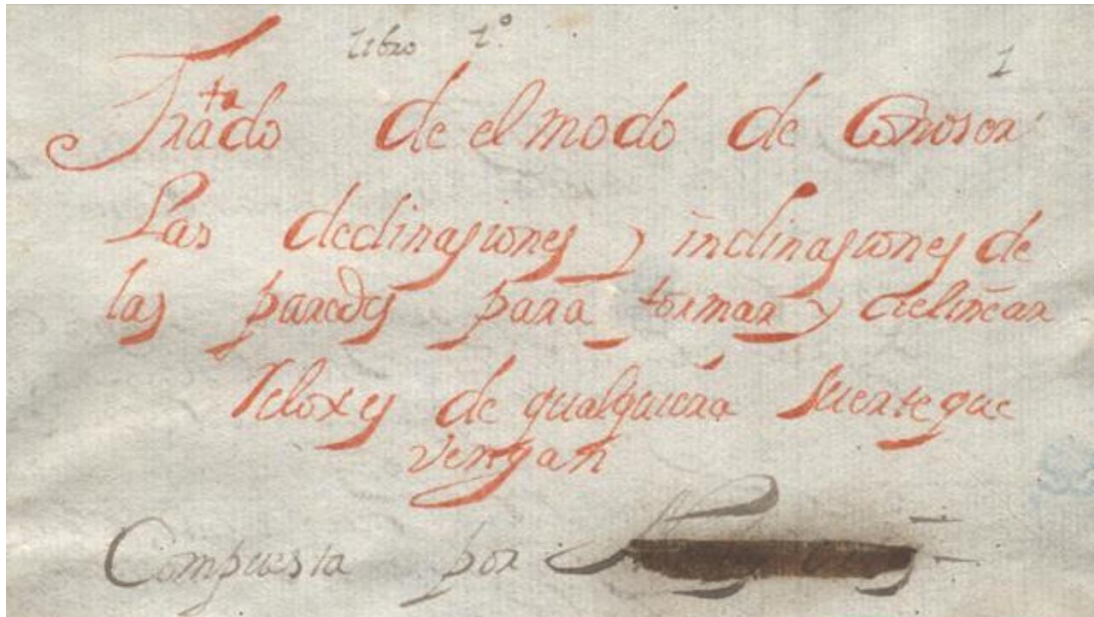 Libro 1º
1
Tratado de el modo de Conoser
Las declinasiones y inclinasiones de
las paredes para formar y delinear
Reloxes de qualquiera suerte que
vengan
Compuesta por